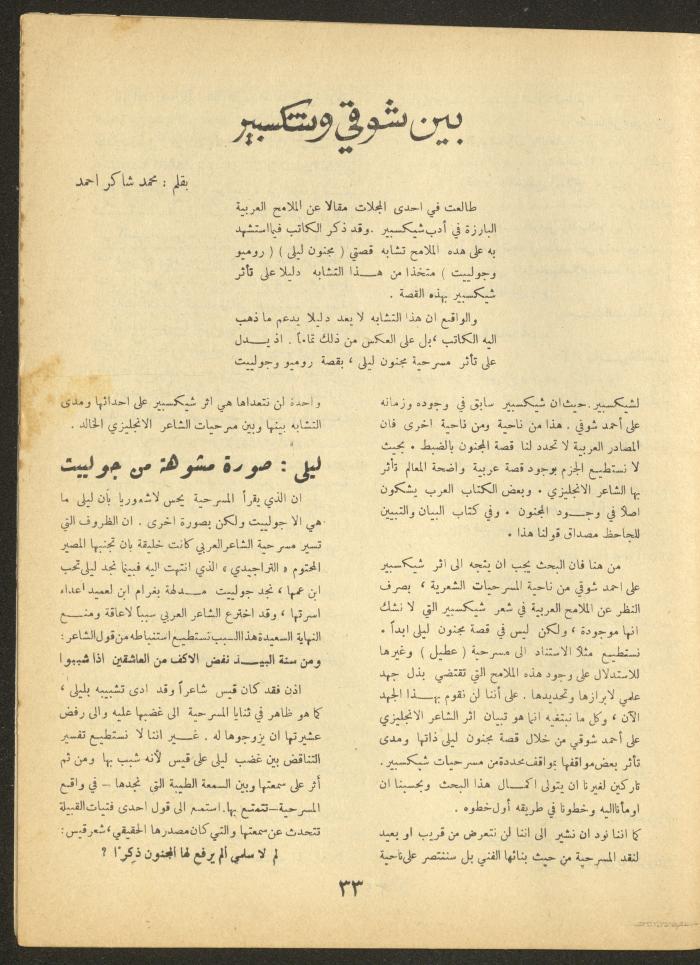 بين شوقي وشكسبير
بقلم : محمد شاكر احمد
طالعت في احدى المجلات مقالا عن الملامح العربية
البارزة في أدب شيكسبير . وقد ذكر الكاتب فيما استشهد
به على هده الملامح تشابه قصتي ( مجنون ليلى ) ( روميو
وجولييت ) متخذا من هـذا التشابه دليلا على تأثر
شيكسبير بهذه القصة .
والواقع ان هذا التشابه لا يعد دليلا يدعم ما ذهب
اليه الكاتب ، بل على العكس من ذلك تماماً . اذ يـدل
على تأثر مسرحية مجنون ليلى ، بقصة روميو وجولييت
لشيكسبير . حيث ان شيكسبير سابق في وجوده وزمانه
على أحمد شوقي . هذا من ناحية ومن ناحية اخرى فان
المصادر العربية لا تحدد لنا قصة المجنون بالضبط . بحيث
لا نستطيع الجزم بوجود قصة عربية واضحة المعالم تأثر
بها الشاعر الانجليزي . وبعض الكتاب العرب يشكون
اصلاً في وجـود المجنون . وفي كتاب البيان والتبيين
للجاحظ مصداق قولنا هذا .
من هنا فان البحث يجب ان يتجه الى اثر شيكسبير
على احمد شوقي من ناحية المسرحيات الشعرية ، بصرف
النظر عن الملامح العربية في شعر شيكسبير التي لا نشك
انها موجودة ، ولكن ليس في قصة مجنون ليلى ابداً .
نستطيع مثلاً الاستناد الى مسرحية ( عطيل ) وغيرها
للاستدلال على وجود هذه الملامح التي تقتضي بذل جهد
علمي لابرازها وتحديدها . على أننا لن نقوم بهـذا الجهد
الآن ، وكل ما نبتغيه انما هو تبيان اثر الشاعر الانجليزي
على أحمد شوقي من خلال قصة مجنون ليلى ذاتها ومدى
تأثر بعض مواقفها بمواقف محددة من مسرحيات شيكسبير .
تاركين لغيرنا ان يتولى اكمـال هذا البحث وبحسبنا ان
اومأنا اليه وخطونا في طريقه أول خطوه .
كما اننا نود ان نشير الى اننا لن نتعرض من قريب او بعيد
لنقد المسرحية من حيث بنائها الفني بل سنقتصر على ناحية
واحدة لن نتعداها هي اثر شيكسبير على احداثها ومدى
التشابه بينها وبين مسرحيات الشاعر الانجليزي الخالد .
ليلى : صورة مشوهة من جولييت
ان الذي يقرأ المسرحية يحس لاشعوريا بأن ليلى ما
هي الا جولييت ولكن بصورة اخرى . ان الظروف التي
تسير مسرحية الشاعر العربي كانت خليقة بان تجنبها المصير
المحتوم « التراجيدي » الذي انتهت اليه فبينما نجد ليلى تحب
ابن عمها ، نجد جولييت مـدلهة بغرام ابن لعميد أعداء
اسرتها ، وقد اخترع الشاعر العربي سبباً لاعاقة ومنـع
النهاية السعيدة هذا السبب نستطيع استنباطه من قول الشاعر :
ومن سنة البيـد نفض الاكف من العاشقين اذا شببوا
اذن فقد كان قيس شاعراً وقد ادى تشبيبه بليلى ،
كما هو ظاهر في ثنايا المسرحية الى غضبها عليه والى رفض
عشيرتها ان يزوجوها له . غـير اننا لا نستطيع تفسير
التناقض بين غضب ليلى على قيس لأنه شبب بها ومن ثم
أثر على سمعتها وبين السمعة الطيبة التي نجدها – في واقع
المسرحية – تتمتع بها . استمع الى قول احدى فتيات القبيلة
تتحدث عن سمعتها والتي كان مصدرها الحقيقي ، شعر قيس :
لم لا سلمى ألم يرفع لها المجنون ذكرًا ؟
٣٣